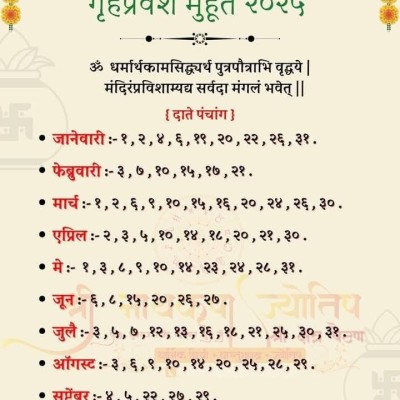 गृहप्रवेश मुहूर्त २०२५
ॐ धर्मार्थकामसिद्ध्यर्थ पुत्रपौत्राभि वृद्धये |
मंदिरंप्रविशाम्यद्य सर्वदा मंगलं भवेत् ||
{ दाते पंचांग }
• जानेवारी :- १ , २ , ४ , ६ , १९ , २० , २२ , २६ , ३१ .
• फेब्रुवारी :- ३ , ७ , १० , १५ , १७ , २१ .
• मार्च :- १ , २ , ६ , ९ , १० , १५ , १६ , २० , २४ , २६ , ३० .
• एप्रिल :- २ , ३ , ५ , १० , १४ , १८ , २० , २१ , ३० .
• मे :- १ , ३ , ८ , ९ , १० , १४ , २३ , २४ , २८ , ३१ .
• जून :- ६ , ८ , १५ , २० , २६ , २७ .
• जुलै :- ३ , ५ , ७ , १२ , १३ , १६ , १८ , २१ , २५ , ३० , ३१ .
• ऑगस्ट :- ३ , ६ , ९ , १० , १४ , २० , २५ , २८ , २९ .
• सप्टेंबर :- ४ , ५ , २२ , २७ , २९ .